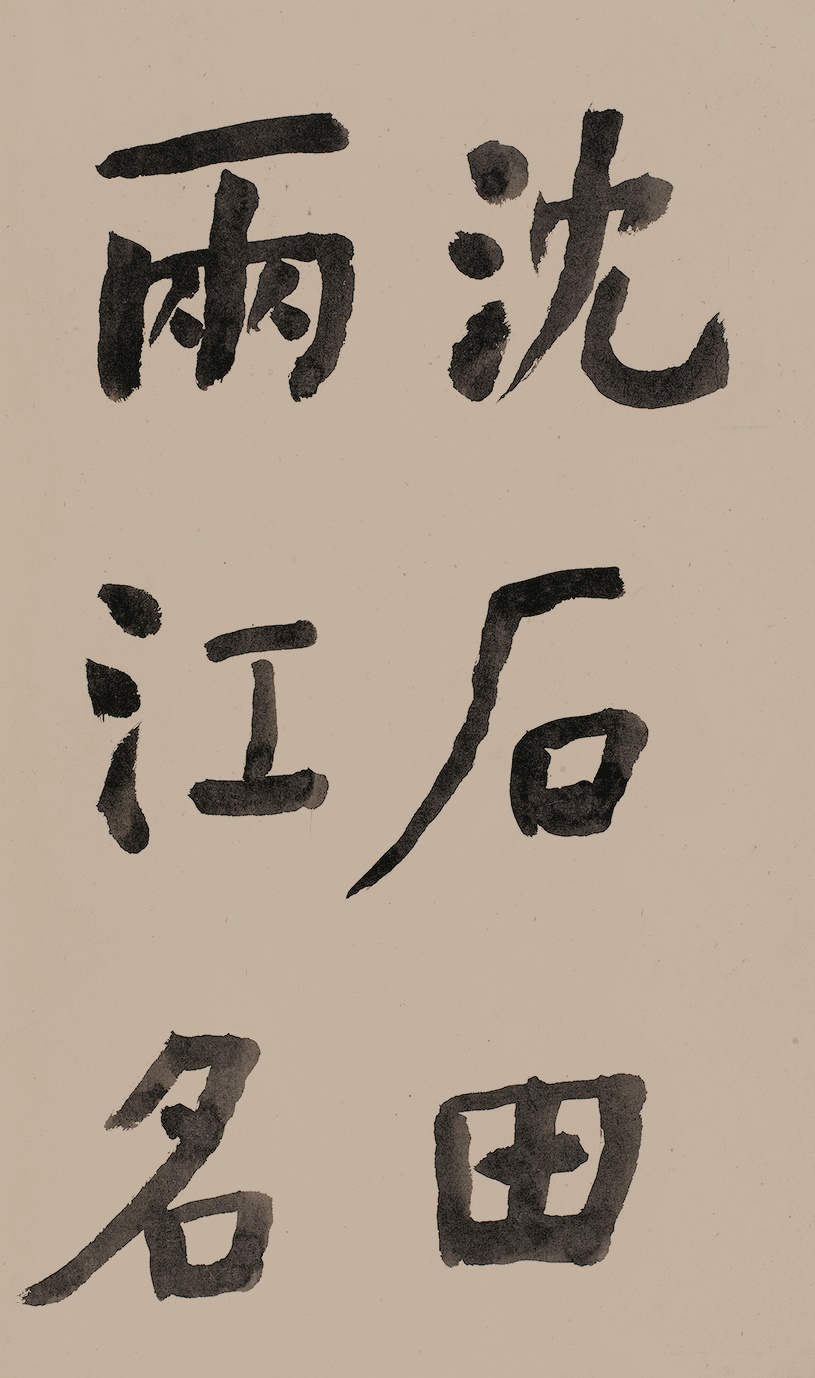 沈石田
兩江名